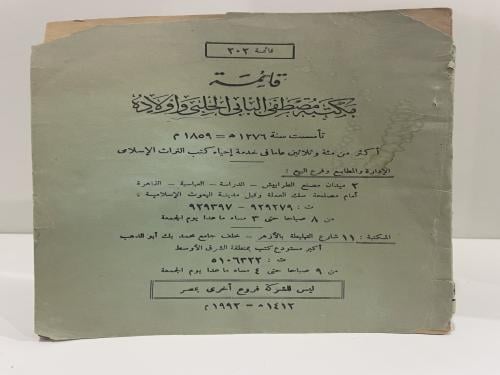 قائمة ٢٠٢
قائمة
مكتبة مصطفى البابي الحلبي وأولاده
تأسست سنة ١٢٧٦ هـ = ١٨٥٩ م
أكثر من مئة وثلاثين عاما فى خدمة إحياء كتب التراث الإسلامى
الإدارة والمطابع وفرع البيع :
٢ ميدان مصنع الطرابيش - الدراسة - العباسية - القاهرة
أمام مصلحة سك العملة وقبل مدينة البعوث الإسلامية :
ت : ٩٢٩٢٧٩ - ٩٢٩٣٩٧
من ٨ صباحا حتى ٣ مساء ماعدا يوم الجمعة
المكتبة : ١١ شارع التبليطة بالأزهر - خلف جامع محمد بك أبو الدهب
أكبر مستودع كتب بمنطقة الشرق الأوسط
ت : ٥١٠٦٣٢٢
من ٩ صباحا حتى ٤ مساء ماعدا يوم الجمعة
ليس للشركة فروع أخرى بمصر
١٤١٣ هـ - ١٩٩٢ م